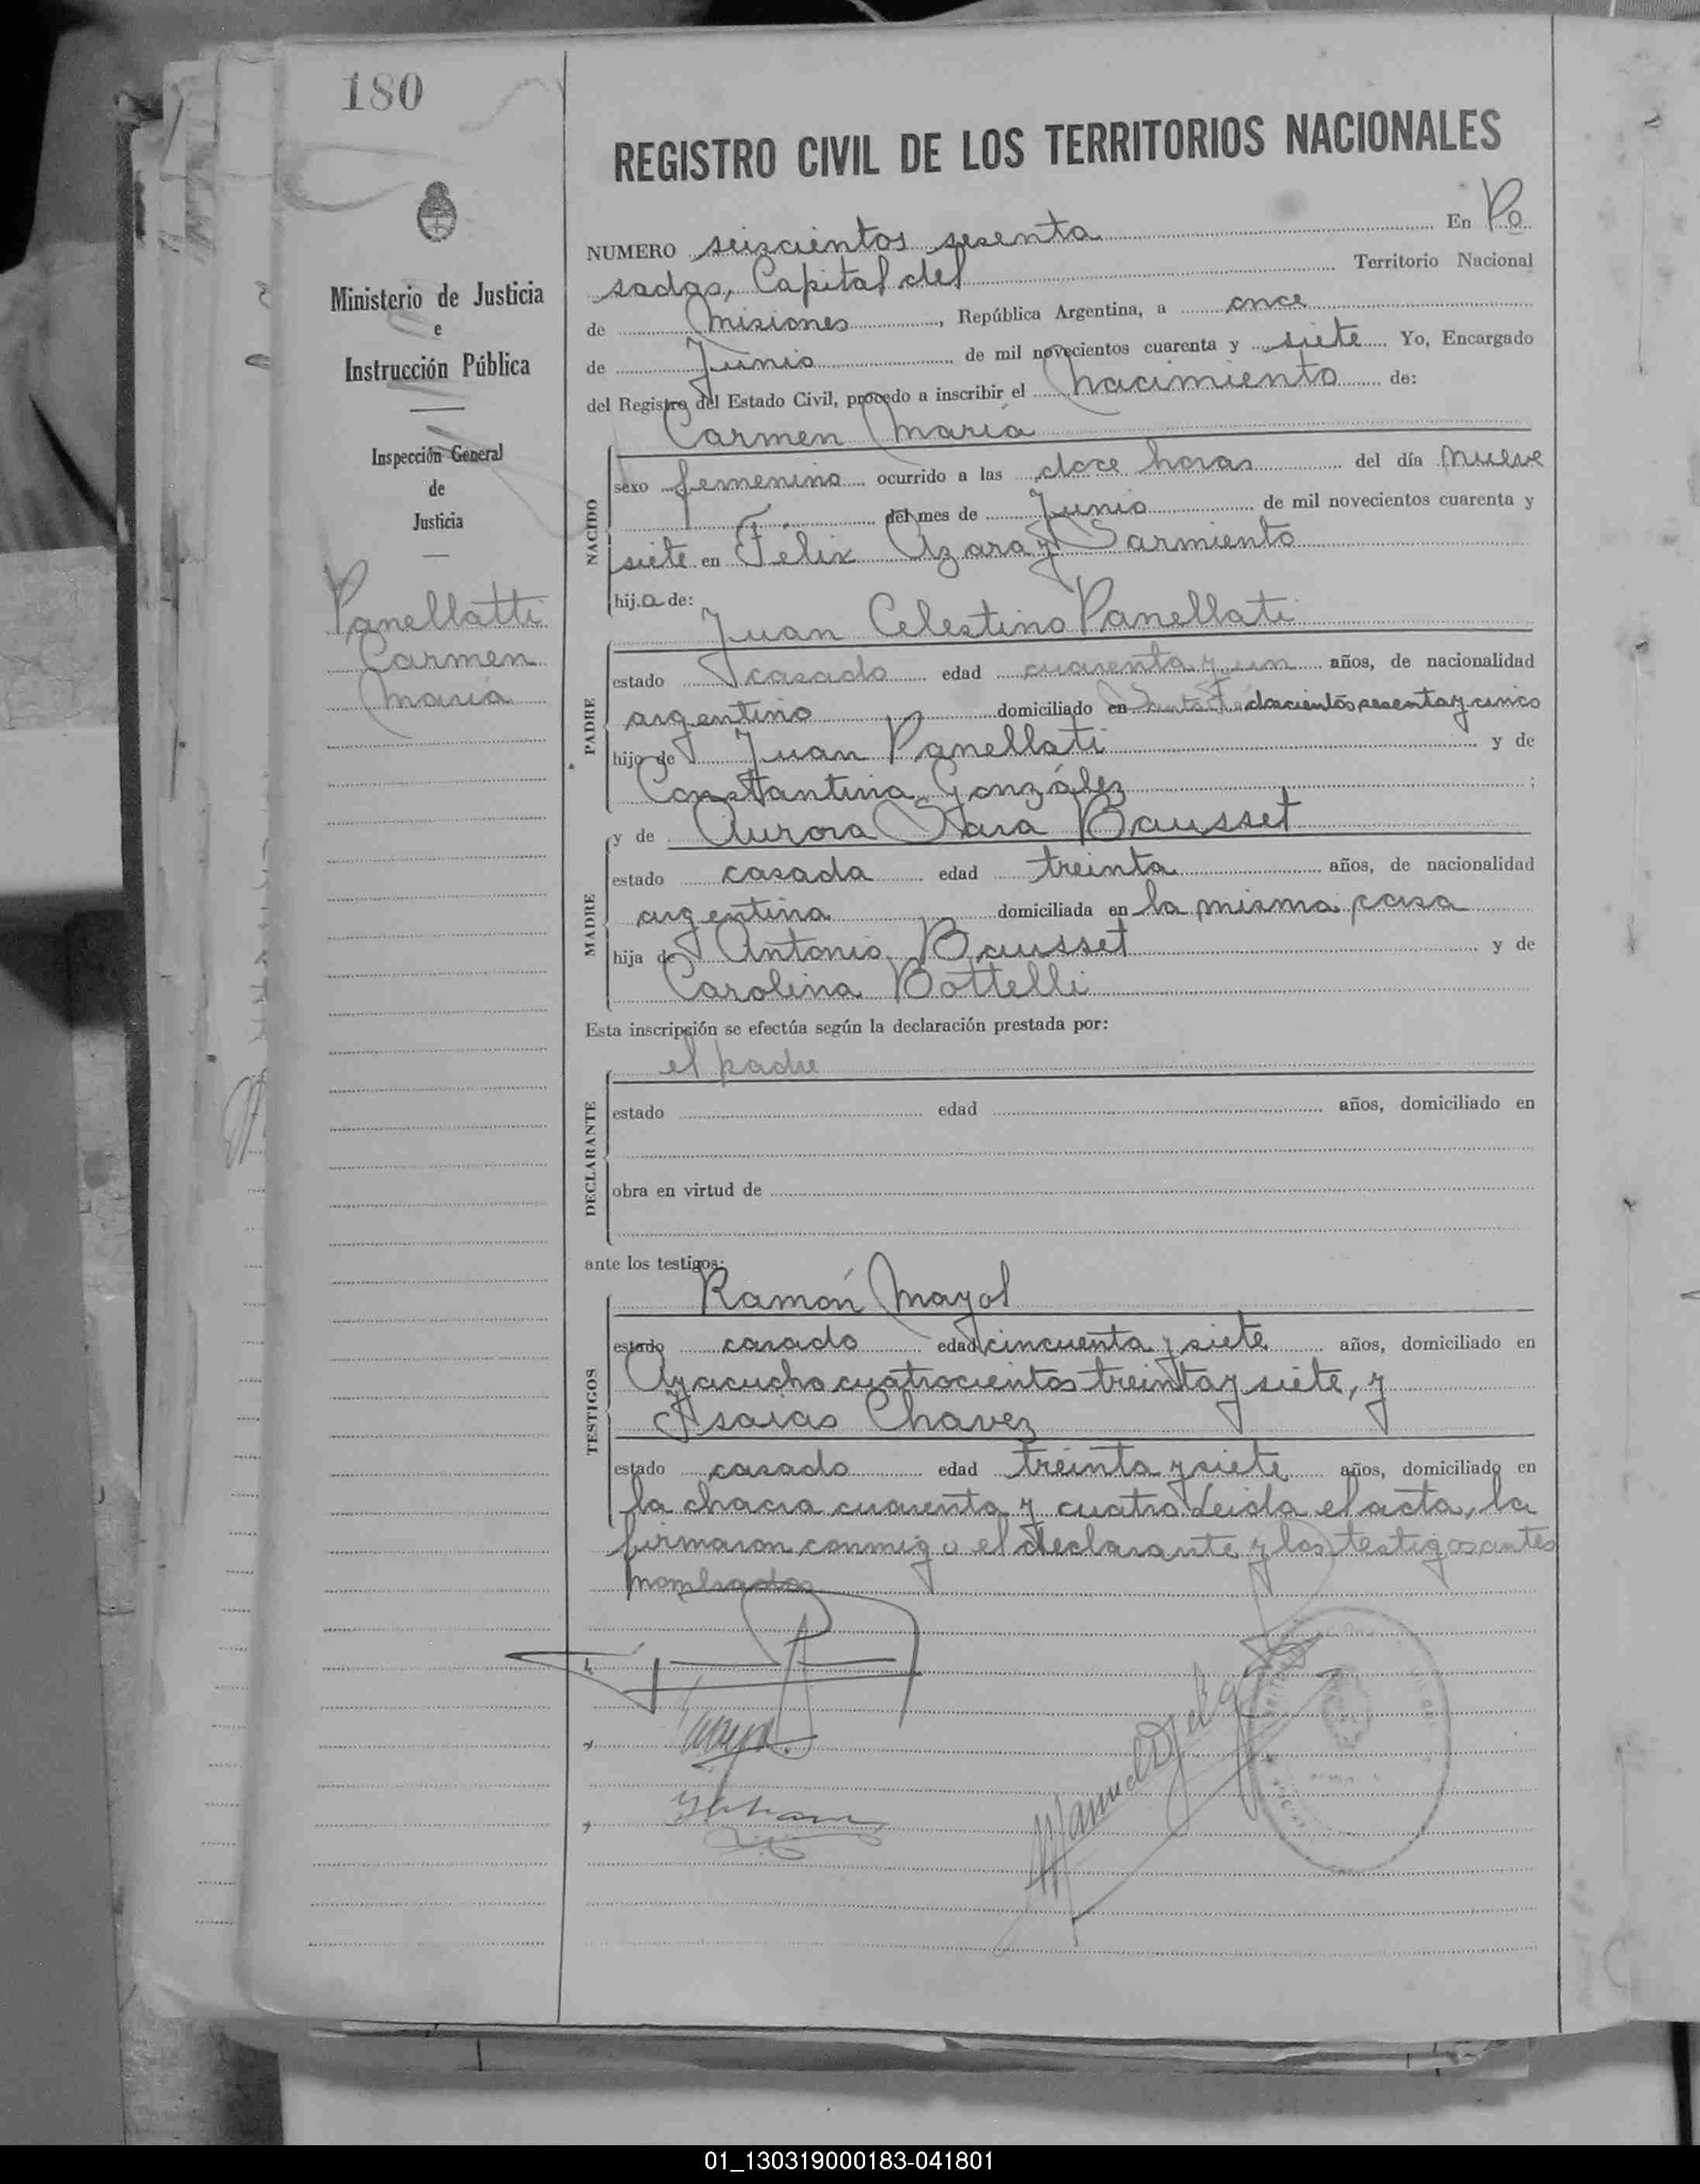 180
REGISTRO CIVIL DE LOS TERRITORIOS NACIONALES
Ministerio de Justicia
e
Instrucción Pública
Inspección General
de
Justicia
Panellatti
Carmen
Maria
NUMERO seiscientos sesenta En Po
sadas, Capital del Territorio Nacional
de Misiones, República Argentina, a once
de Junio de mil novecientos cuarenta y siete Yo, Encargado
del Registro del Estado Civil, procedo a inscribir el nacimiento de:
Carmen María
NACIDO
sexo femenino ocurrido a las doce horas del día nueve
del mes de Junio de mil novecientos cuarenta y
siete en Félix Azara y Sarmiento
hija de:
Juan Celestino Panellati
PADRE
estado casado edad cuarenta y un años, de nacionalidad
argentino domiciliado en Santa Fe doscientos sesenta y cinco
hijo de Juan Panellati y de
Constantina González ;
y de Aurora Sara Bausset
MADRE
estado casada edad treinta años, de nacionalidad
argentina domiciliada en la misma casa
hija de Antonio Bausset y de
Carolina Bottelli
Esta inscripción se efectúa según la declaración prestada por:
el padre
DECLARANTE
estado edad años, domiciliado en
obra en virtud de
ante los testigos:
Ramón Mayol
TESTIGOS
estado casado edad cincuenta y siete años, domiciliado en
Ayacucho cuatrocientos treinta y siete, y
Isaias Chavez
estado casado edad treinta y siete años, domiciliado en
la chacra cuarenta y cuatro. Leida el acta, la
firmaron conmigo el declarante y los testigos antes
nombrados
01_130319000183-041801